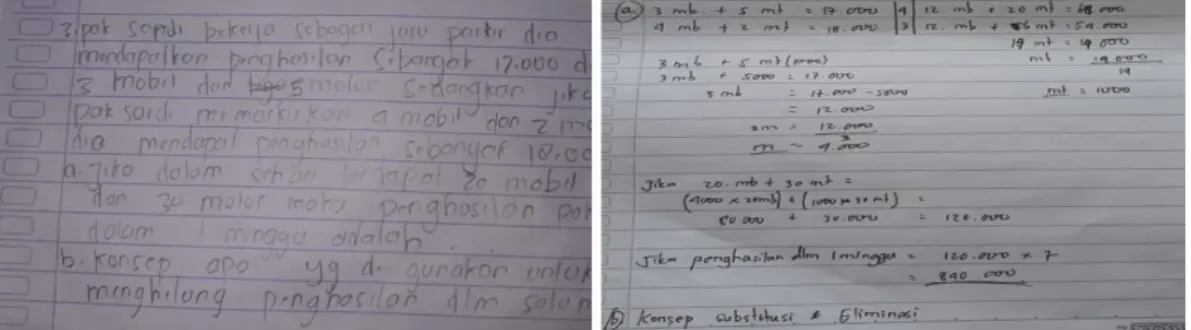 3. pak sapdi bekerja sebagai juru parkir dia
mendapatkan penghasilan sebanyak 17.000 d
3 mobil dan 5 motor sedangkan jika
pak saidi memarkirkan 4 mobil dan 2 mo
dia mendapat penghasilan sebanyak 18.00
a. Jika dalam sehari terdapat 20 mobil
dan 30 motor maka penghasilan pa
dalam 1 minggu adalah . . .
b. konsep apa yg di gunakan untuk
menghitung penghasilan dlm
(a.) 3 mb + 5 mt = 17.000 |4| 12. mb + 20 mt = 68.000
4 mb + 2 mt = 18.000 |3| 12. mb + 6 mt = 54.000
14 mt = 14.000
3 mb + 5 mt (1000)
mt = 14.000
14
3 mb + 5000 = 17.000
3 mb = 17.000 - 5000
mt = 1000
= 12.000
3m = 12.000
3
m = 4.000
Jika 20. mb + 30 mt =
(4000 x 20mb) + (1000 x 30 mt) =
80.000 + 30.000 = 120.000
Jika penghasilan dlm 1 minggu = 120.000 x 7
= 840.000
(b) Konsep substitusi & Eliminasi